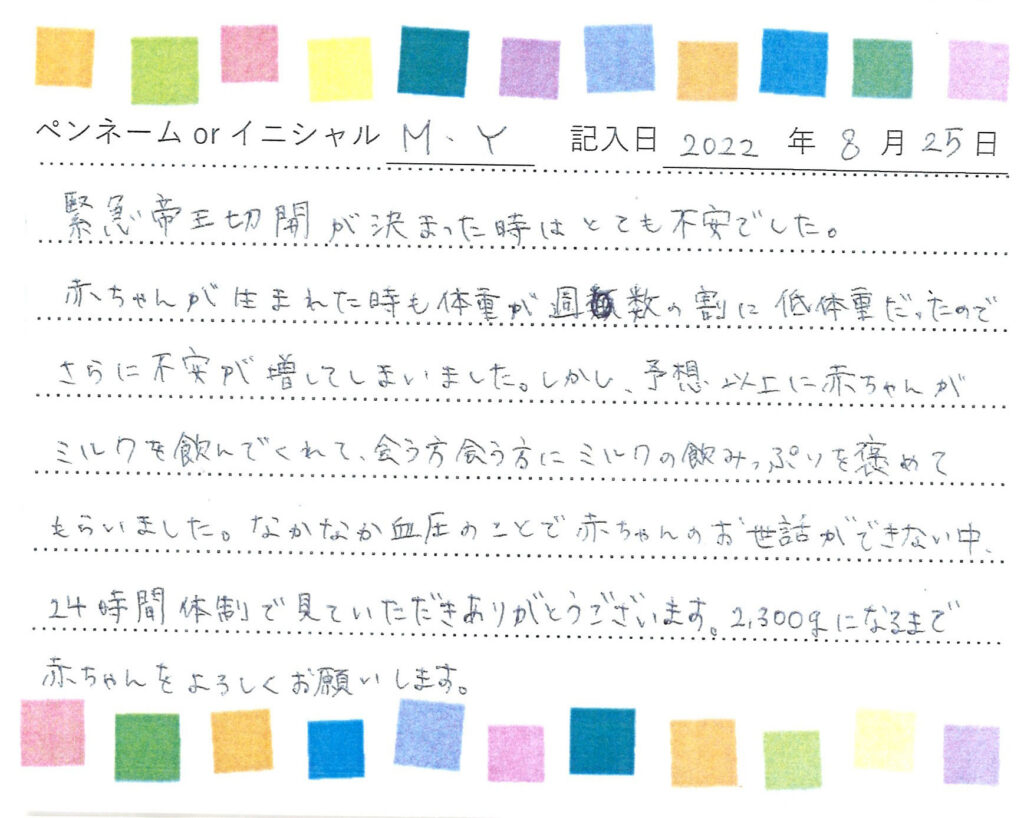 ペンネーム or イニシャル M・Y 記入日 2022 年 8 月 25 日
緊急帝王切開が決まった時はとても不安でした。
赤ちゃんが生まれた時も体重が週数の割に低体重だったので
さらに不安が増してしまいました。しかし、予想以上に赤ちゃんが
ミルクを飲んでくれて、会う方会う方にミルクの飲みっぷりを褒めて
もらいました。なかなか血圧のことで赤ちゃんのお世話ができない中、
24時間体制で見ていただきありがとうございます。2,300gになるまで
赤ちゃんをよろしくお願いします。